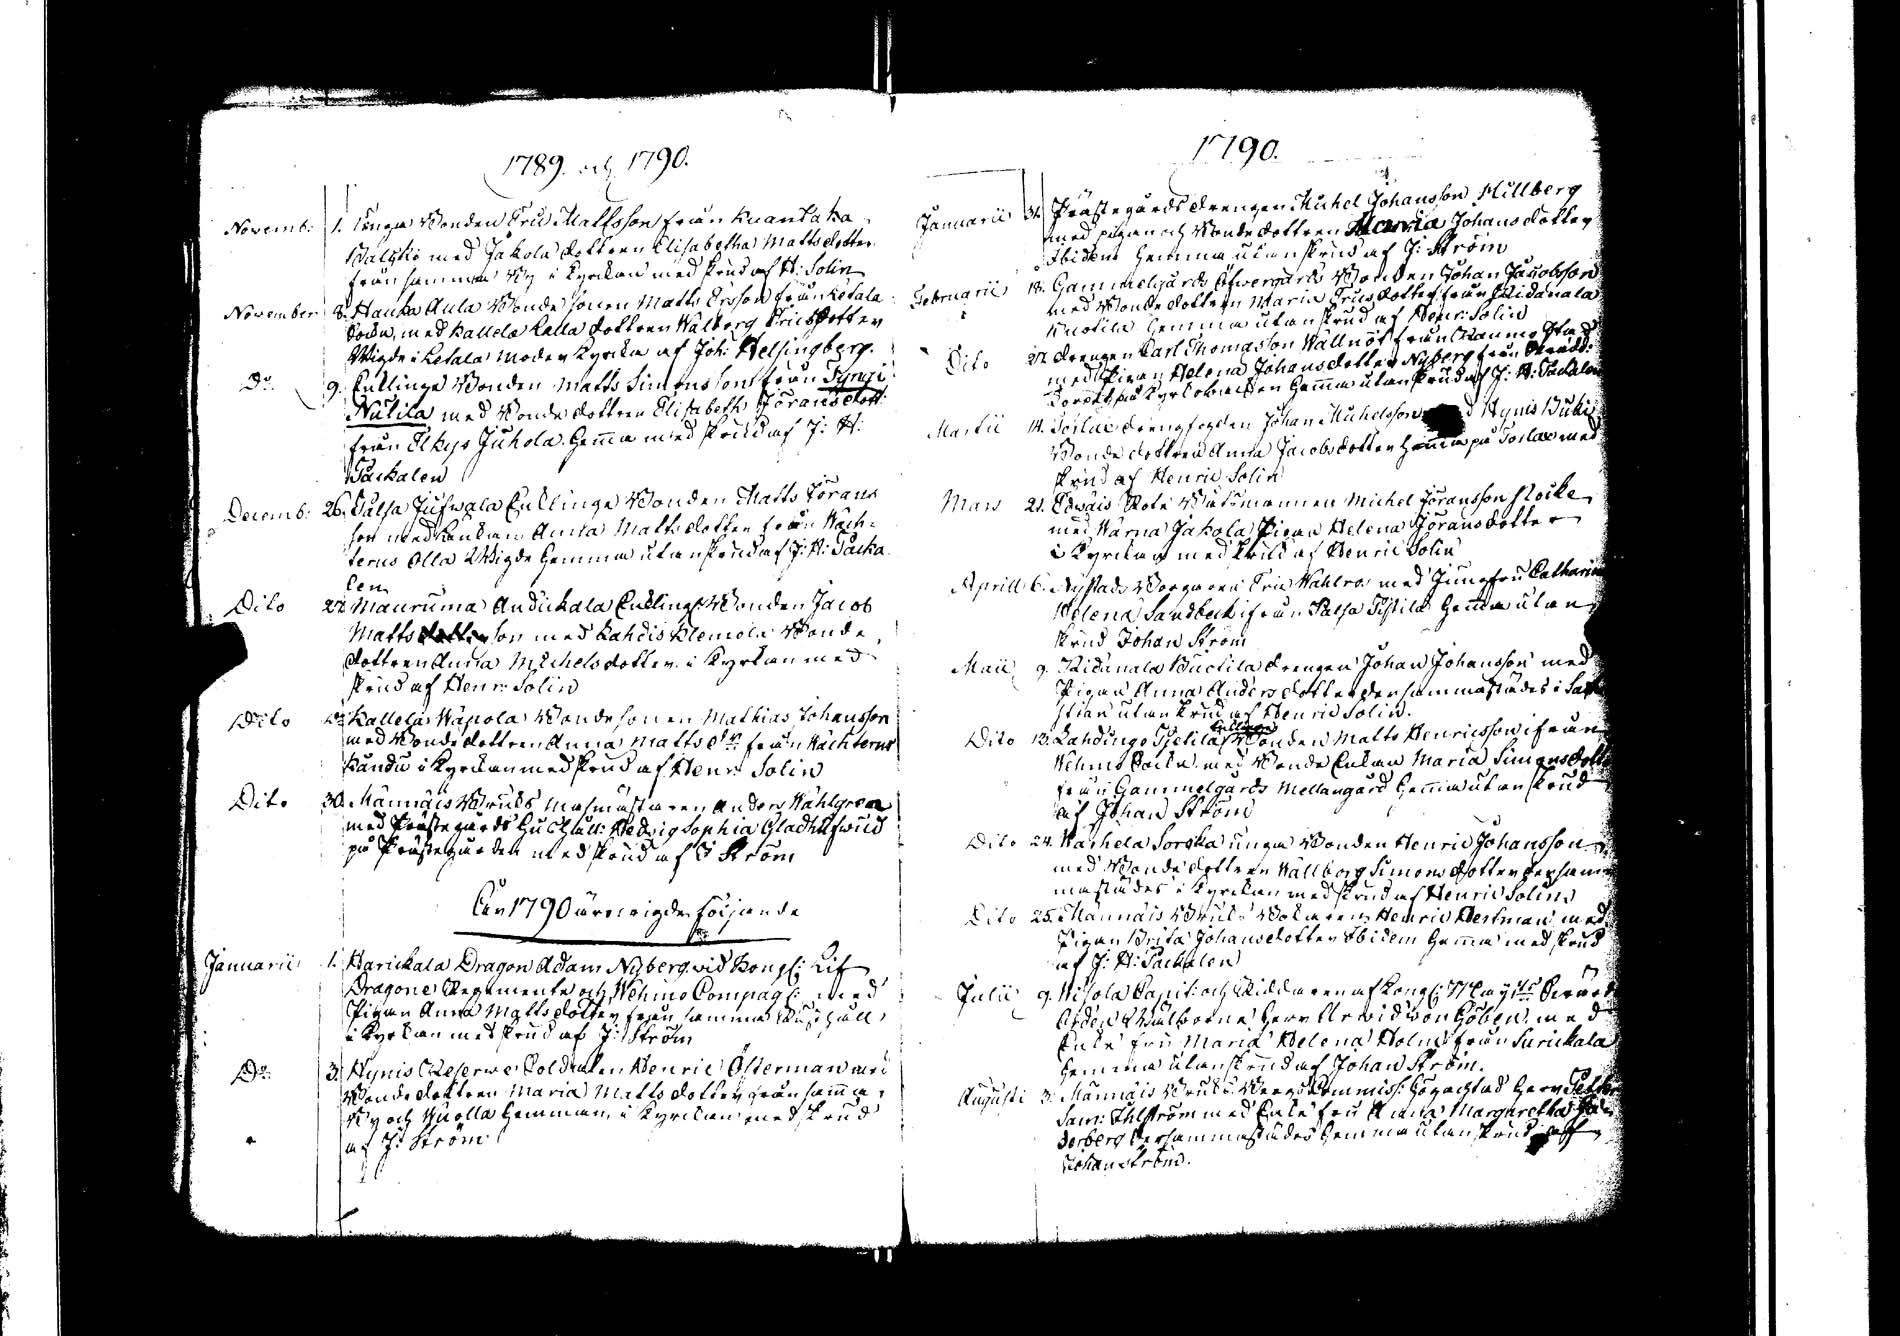 1789. och 1790.
Novemb: 1. Unga Bonden Eric Mattsson från Kuanta ka
med Jakola dottren Elisabetha Mattsdotter
från samma By i Kyrckan med skrud af H: Solin
November 8. Hauka Aula Bonde sonen Matts Ersson från Letala
med Kallela Kalla dottren Walborg Ericsdotter
Wigde i Letala Moder Kyrcka af Joh: Helsingberg.
Do 9. Encklinge Bonden Matts Simonsson från Syngi
Nutila med Bonde dottren Elisabeth Jöransdott:
från Elkys Juhola. Hemma med skrud af J: H:
Packalen
Decemb: 26. Salsa Jufwala Encklinge Bonden Matts Jörans
son med Enckan Anna Mattsdotter från Wäch-
terus Olla Wigde hemma utan skrud af J: H: Packa
len
Dito 27. Mauruma Andickala Encklinge Bonden Jacob
Matts son med Lahdis Klemola Bonde
dottren Anna Michelsdotter i Kyrkan med
skrud af Henr: Solin
Dito Do Kallela Wäpola Bonde sonen Mathias Johansson
med Bonde dottren Anna Matts dr från Wächterus
i Kyrckan med skrud af Henr: Solin
Dito 30. Männäis Bruks Masmästaren Anders Wahlgren
med Prästegårds Hushåll: Hedvig Sophia Gladhufwud
på Prästegården med skrud af J Ström
År 1790 äro wigde följande
Januarii 1. Harickala Dragon Adam Nyberg vid Kongl: Lif
Dragone Regemente och Wehmo Compag: med
Pigan Anna Mattsdotter från samma Rusthåll
i Kyrkan med skrud af J: Ström
Do 3. Hynis Reserwe Soldaten Henric Österman med
Bonde dottren Maria Matts dotter från samma
By och Knolla Hemman, i Kyrckan med skrud
af J: Ström
1790.
Januarii 31. Prästegårds drengen Michel Johansson Hillberg
med pigan och Bonde dottren Maria Johansdotter
Ibidem hemma utan skrud af J: Ström
Februarii 13. Gammelgårds Öfwergårds Bonden Johan Jacobsson
med Bonde dottren Maria Ericsdotter från Ridanala
Knotila Hemma utan skrud af Henr: Solin
Dito 27. drengen Carl Thomasson Wallnöf från Raumo Stad
med Pigan Helena Johansdotter Nyberg från
på Kyrckowallen Hemma utan skrud af J: H: Packalen
Martii 14. drengfogden Johan Michelsson Hynis Buki
Bonde dottren Anna Jacobsdotter hemma på med
skrud af Henric Solin
Mars 21. Edwäis Rote Båtsmannen Michel Jöransson Flocke
med Wärna Jakola Pigan Helena Jöransdotter
i Kyrckan med skrud af Henric Solin
Aprill 6. Nystads Borgaren Eric Wahlros med Jungfru Catharina
Helena Sandbeck ifrån Salsa Tistila hemma utan
skrud Johan Ström
Maii 9. Ridanala Buctila drengen Johan Johansson med
Pigan Anna Andersdotter dersammastädes i
utan skrud af Henric Solin.
Encklinge
Dito 13. Lahdingo Tjetila Bonden Matts Henricsson ifrån
Wehmo Sockn med Bonde Enkan Maria Simonsdotter
från Gammelgårds Mellangård hemma utan skrud
af Johan Ström
Dito 24. Wärhela Sorska unga Bonden Henric Johansson
med Bonde dottren Wallborg Simonsdotter dersam
mastädes i Kyrckan med skrud af Henric Solin
Dito 25. Männäis Bruks Henric Westman med
Pigan Brita Johansdotter Ibidem hemma med skrud
af J: H: Packalen
Julii 9. Wihola Capit: och Riddaren af Kongl: May:ts Swärds
Orden Wälborne Herr Arvid von Göben med
Enke fru Maria Helena Holm från Surickala
hemma utan skrud af Johan Ström.
Augusti 3. Männäis Bruks Bergs Commiss: Högachtad Herr Petter
Sam: Ahlström med Enke fru Anna Margaretha
derberg dersammastädes hemma utan skrud af
Johan Ström.